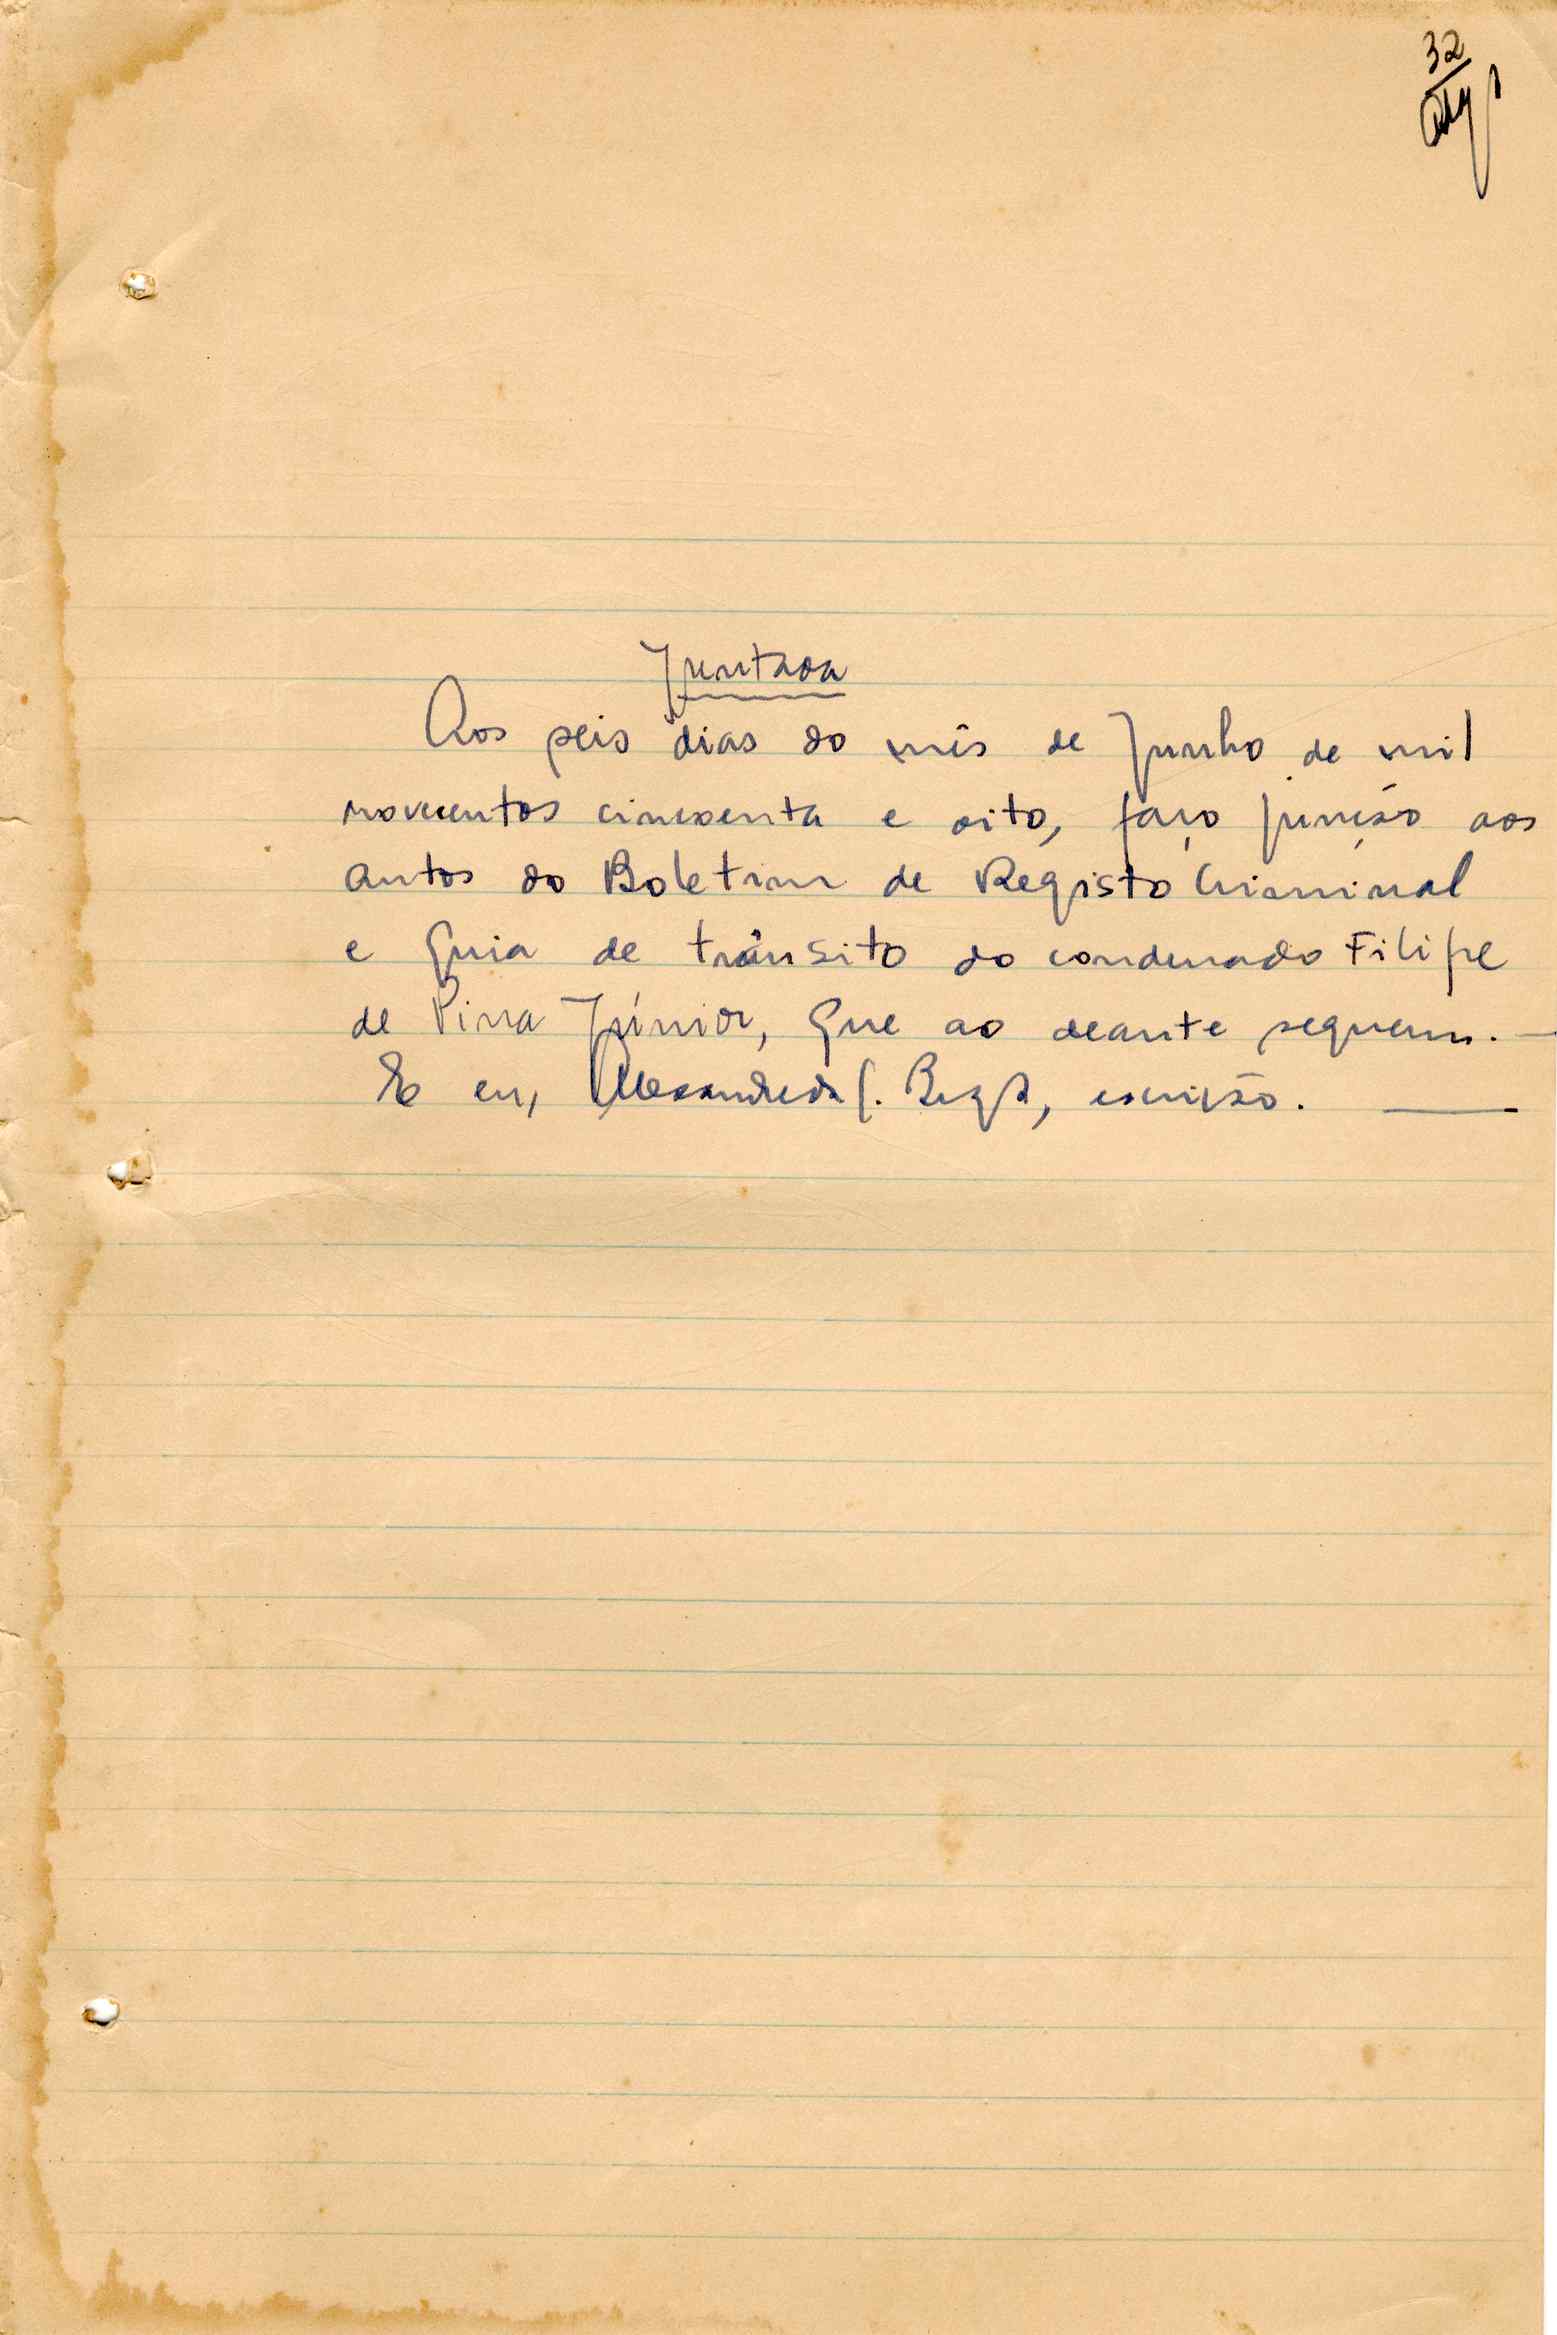 32
Juntada
Aos seis dias do mês de Junho de mil
novecentos cincoenta e oito, faço junção aos
autos do Boletim de Registo Criminal
e Guia de trânsito do condenado Filipe
de Pina Júnior, que ao deante seguem. —
E eu, escrivão. —